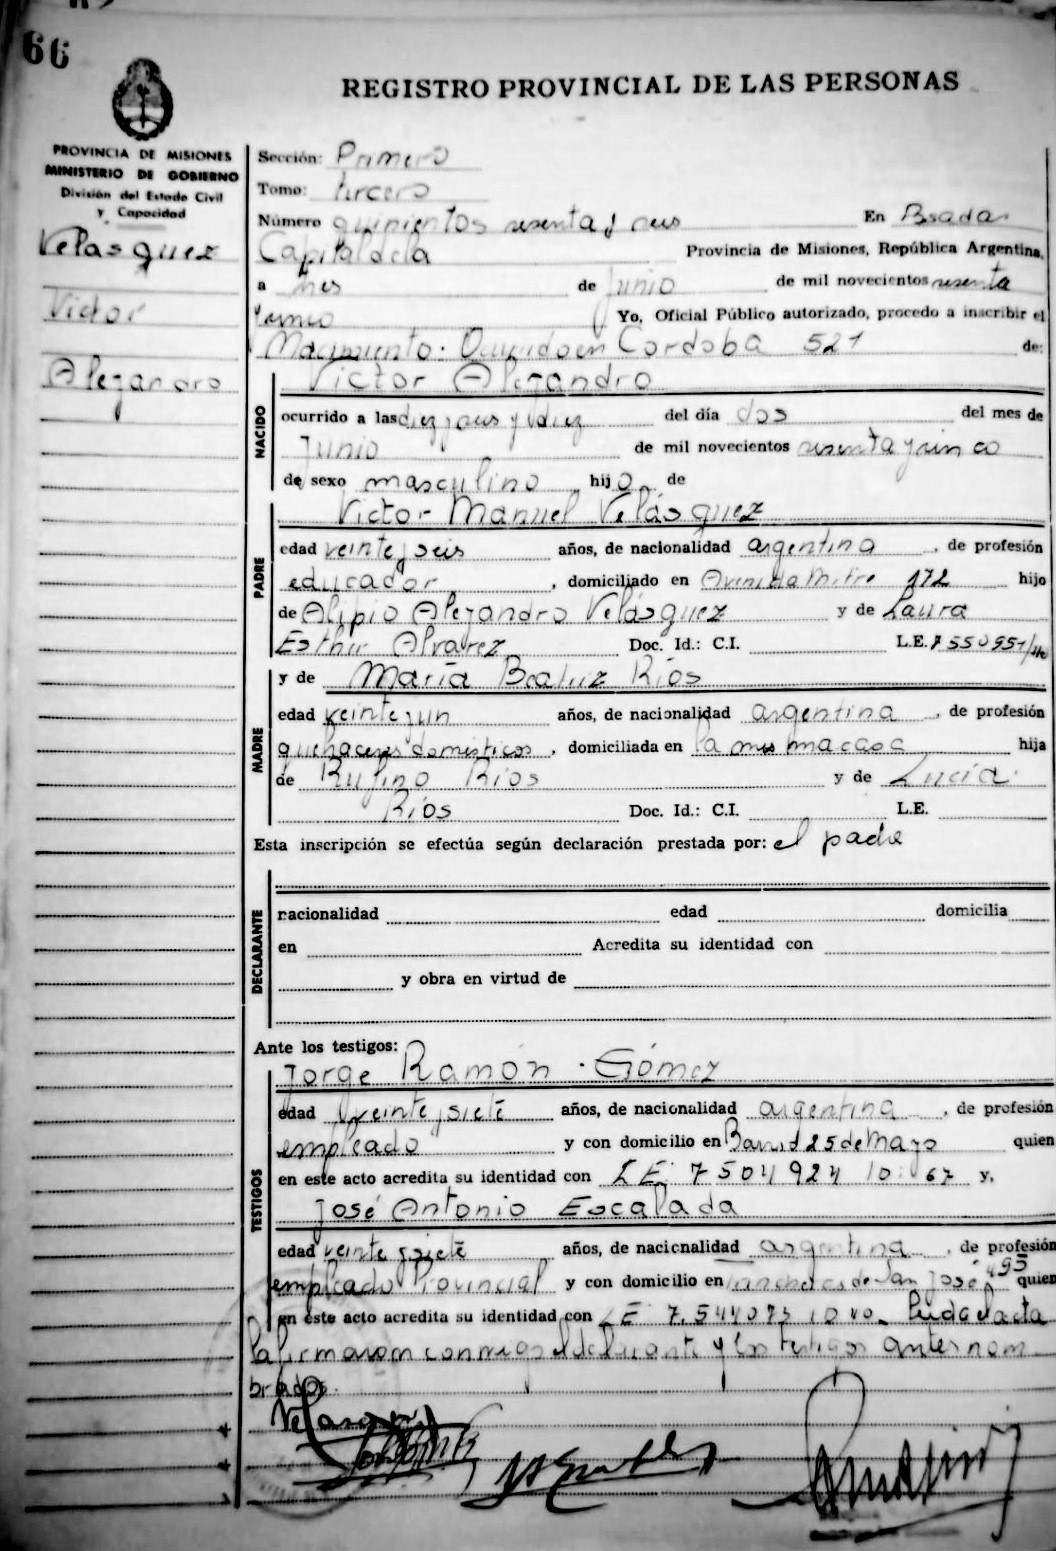 66
REGISTRO PROVINCIAL DE LAS PERSONAS
PROVINCIA DE MISIONES
MINISTERIO DE GOBIERNO
División del Estado Civil
y Capacidad
Velasquez
Victor
Alejandro
Sección: Primero
Tomo: tercero
Número quinientos sesenta y seis En Posadas
Capital de la Provincia de Misiones, República Argentina,
a tres de Junio de mil novecientos sesenta
y cinco Yo, Oficial Público autorizado, procedo a inscribir el
Nacimiento. Ocurrido en Cordoba 521 de:
NACIDO
Victor Alejandro
ocurrido a las diez y seis y diez del día dos del mes de
Junio de mil novecientos sesenta y cinco
de sexo masculino hijo de
PADRE
Victor Manuel Velásquez
edad veinte y seis años, de nacionalidad argentina, de profesión
educador, domiciliado en Avenida Mitre 172 hijo
de Alipio Alejandro Velásquez y de Laura
Esther Alvarez Doc. Id.: C.I. L.E. 7550957
MADRE
y de María Beatriz Ríos
edad veinte y un años, de nacionalidad argentina, de profesión
quehaceres domésticos, domiciliada en la misma casa hija
de Rufino Ríos y de Lucía
Ríos Doc. Id.: C.I. L.E.
Esta inscripción se efectúa según declaración prestada por: el padre
DECLARANTE
nacionalidad edad domicilia
en Acredita su identidad con
y obra en virtud de
Ante los testigos:
TESTIGOS
Jorge Ramón Gómez
edad veinte y siete años, de nacionalidad argentina, de profesión
empleado y con domicilio en 25 de Mayo quien
en este acto acredita su identidad con L.E. 7504924 y,
José Antonio Escalada
edad veinte y siete años, de nacionalidad argentina, de profesión
empleado Provincial y con domicilio en Lanchas de San José 495 quien
en este acto acredita su identidad con LE 7.544073 Leida el acta
la firmaron conmigo el declarante y los testigos antes nom
brados.
Velasquez